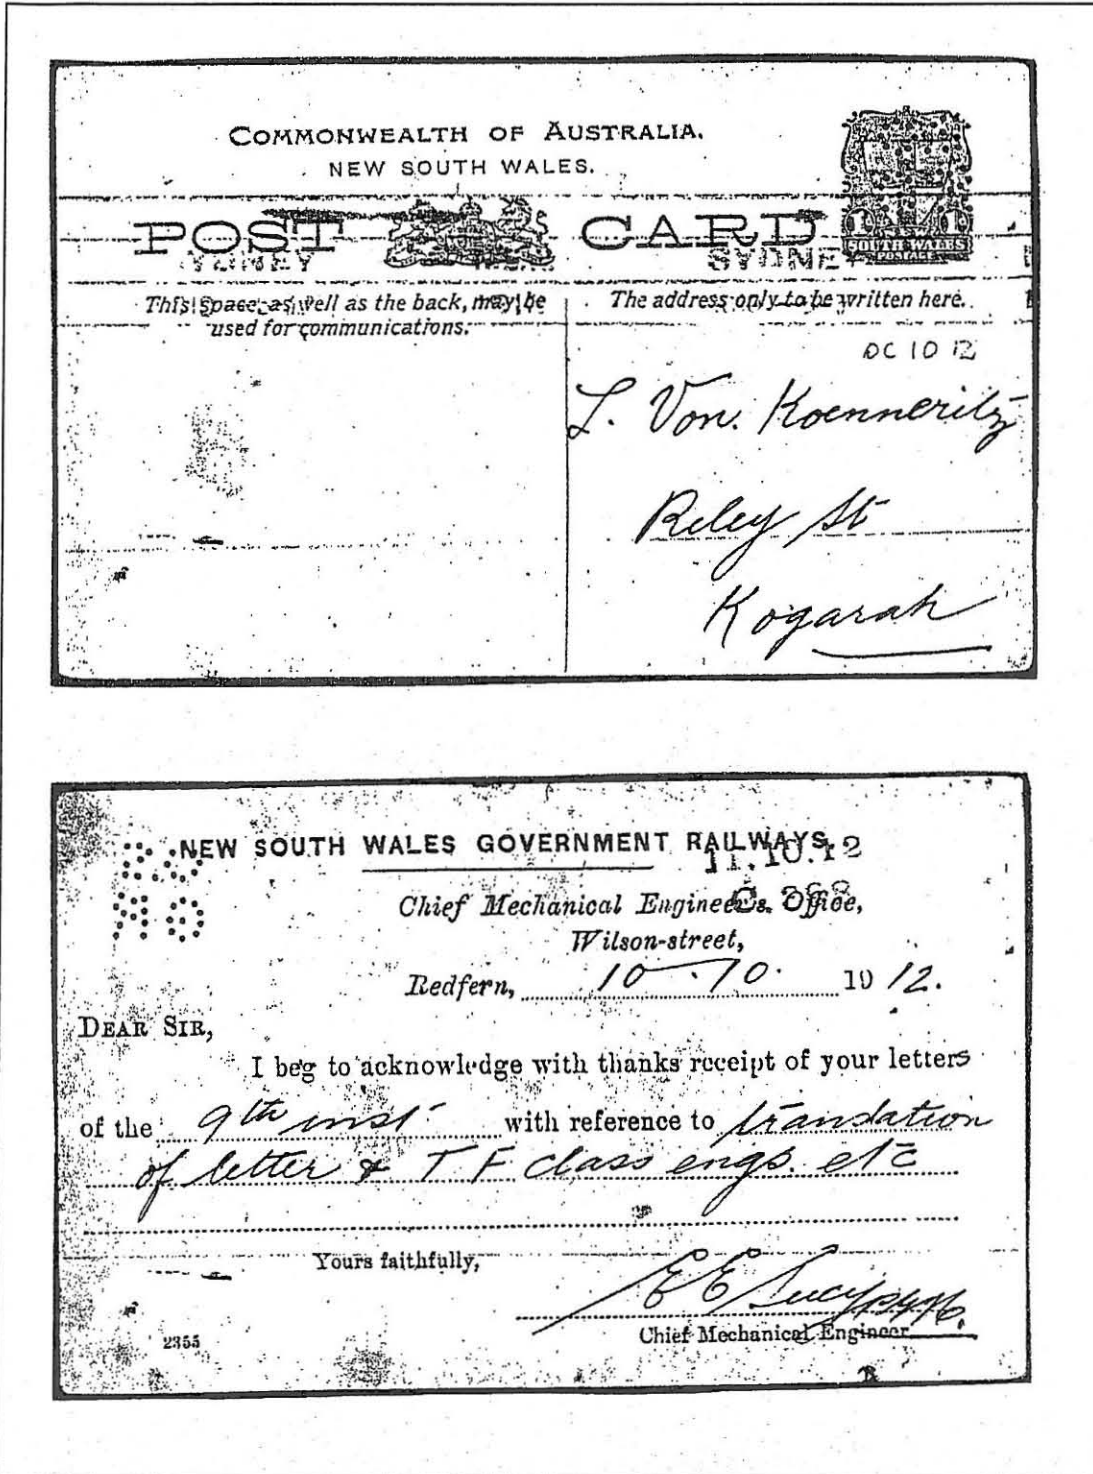 COMMONWEALTH OF AUSTRALIA.
NEW SOUTH WALES.
POST CARD
SYDNEY SYDNEY
SOUTH WALES
POSTAGE
This space, as well as the back, may be
used for communications.
The address only to be written here.
OC 10 12
L. Von. Koenneritz
Riley St
Kogarah
NEW SOUTH WALES GOVERNMENT RAILWAYS.
11.10.12
Chief Mechanical Engineer's Office,
Wilson-street,
Redfern, 10.10. 1912.
DEAR SIR,
I beg to acknowledge with thanks receipt of your letters
of the 9th inst with reference to translation
of letter & T F class engs. etc
Yours faithfully,
E E Lucy
Chief Mechanical Engineer
2355